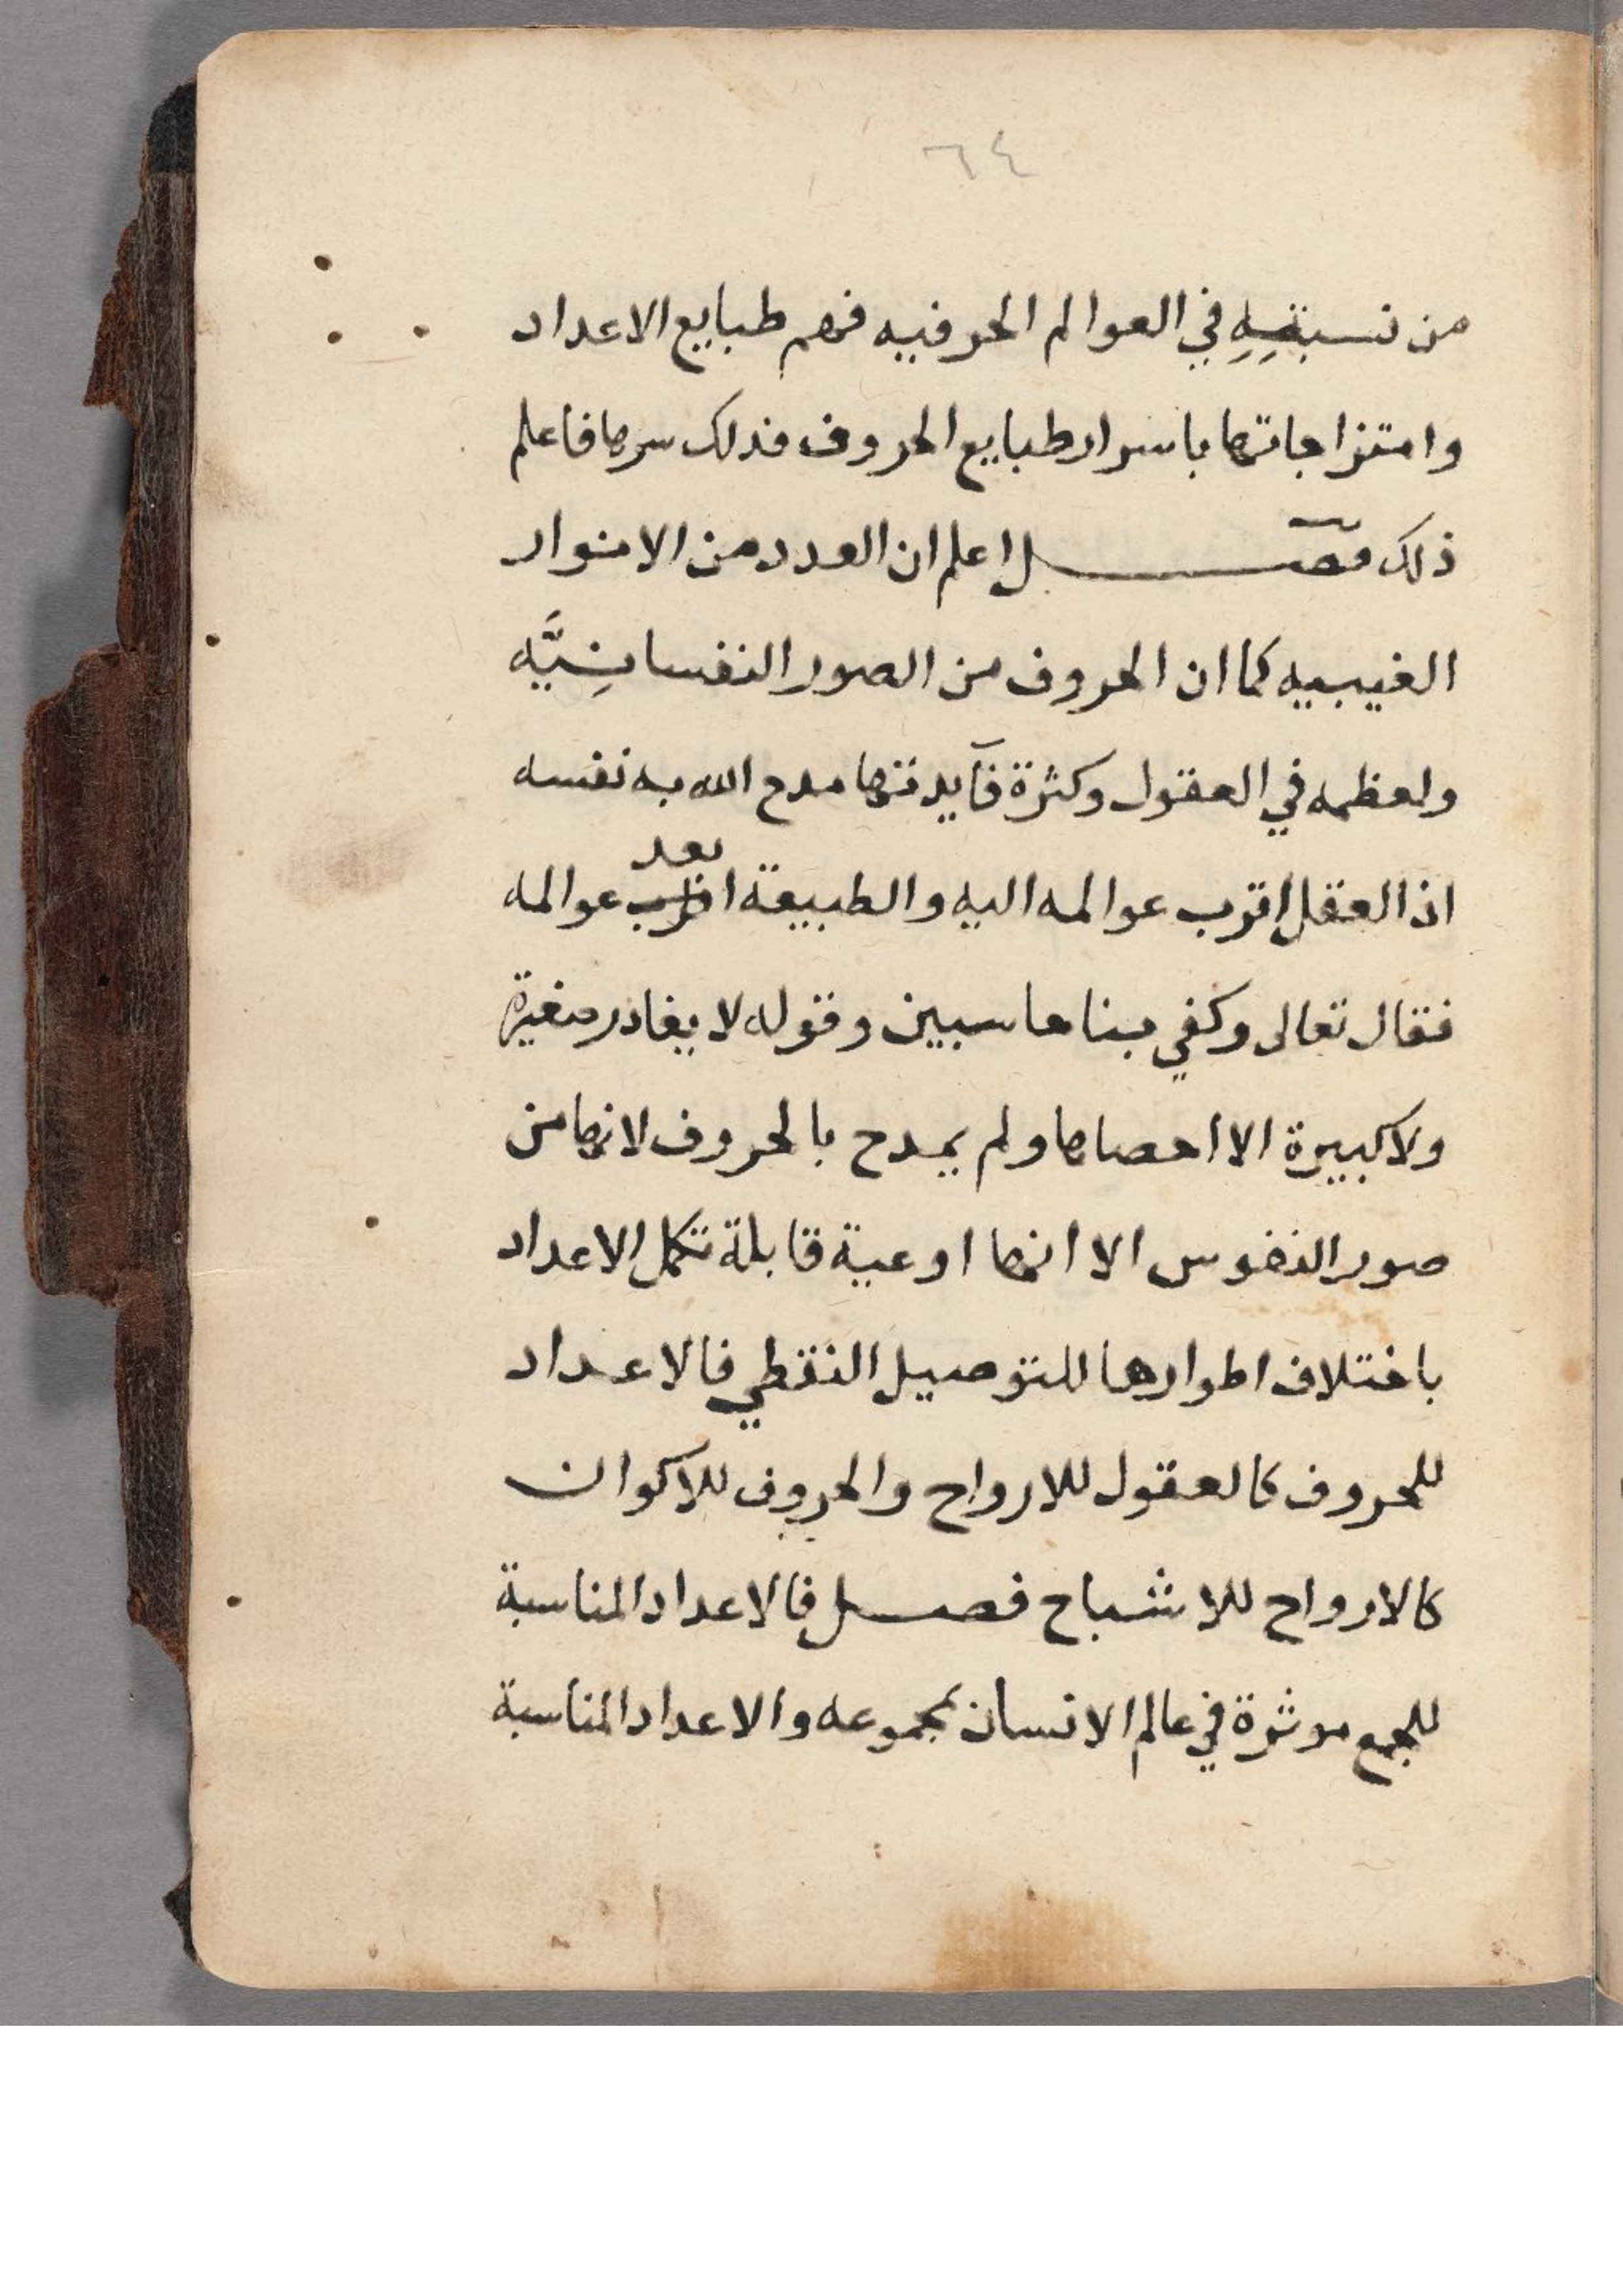 ٦٤
من نسبته في العوالم الحرفيه فهم طبايع الاعداد
وامتزاجاتها باسرار طبايع الحروف فذلك سرها فاعلم
ذلك فصل اعلم ان العدد من الانوار
الغيبيه كما ان الحروف من الصور النفسانِيَّه
ولعظمه في العقول وكثرة فآيدتها مدح الله به نفسه
بعد
اذ العقل اقرب عوالمه اليه والطبيعة اقرب عوالمه
فقال تعالى وكفي بنا حاسبين وقوله لا يغادر صغيرة
ولا كبيرة الا احصاها ولم يمدح بالحروف لانها من
صور النفوس الا انها اوعية قابلة تكمل الاعداد
باختلاف اطوارها للتوصيل النقطي فالاعداد
للحروف كالعقول للارواح والحروف للاكوان
كالارواح للاشباح فصل فالاعداد المناسبة
للجمع موثرة في عالم الانسان بمجموعه والاعداد المناسبة